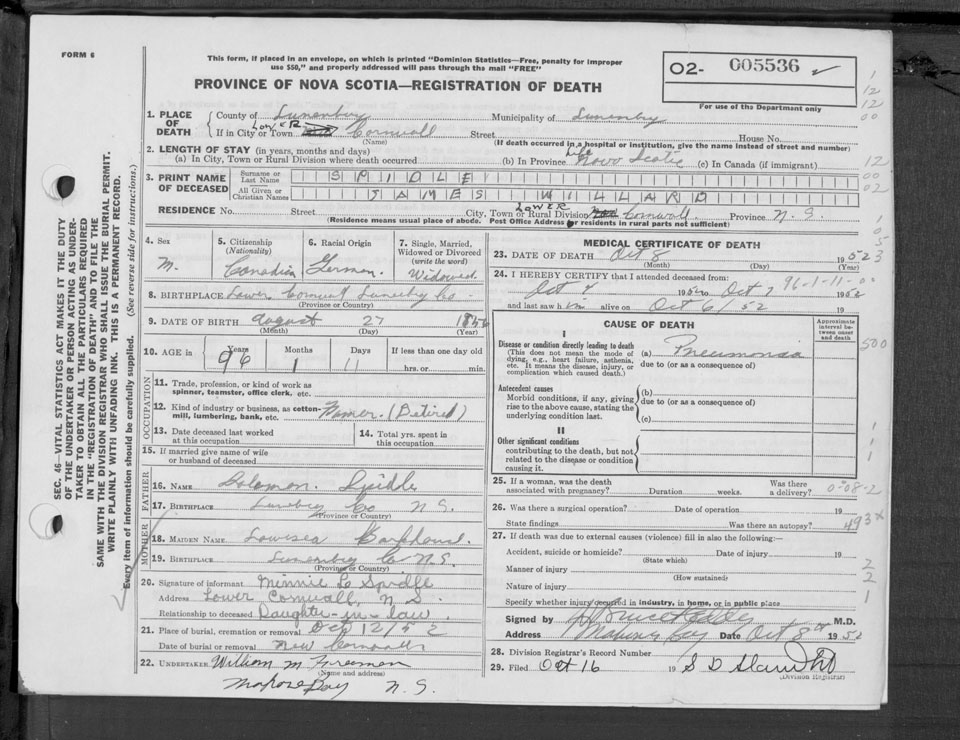 FORM 6
This form, if placed in an envelope, on which is printed "Dominion Statistics—Free, penalty for improper
use $50," and properly addressed will pass through the mail "FREE"
PROVINCE OF NOVA SCOTIA—REGISTRATION OF DEATH
02- 005536 ✓
For use of the Department only
1. PLACE OF DEATH { County of Lunenburg Municipality of Lunenburg
If in City or Town LOWER Cornwall Street House No.
(Name) (If death occurred in a hospital or institution, give the name instead of street and number)
2. LENGTH OF STAY (in years, months and days) Life
(a) In City, Town or Rural Division where death occurred (b) In Province Nova Scotia (c) In Canada (if immigrant)
3. PRINT NAME OF DECEASED { Surname or Last Name SPIDLE
All Given or Christian Names JAMES WILLARD
RESIDENCE No. Street City, Town or Rural Division LOWER Cornwall Province N. S.
(Residence means usual place of abode. Post Office Address for residents in rural parts not sufficient)
4. Sex M. 5. Citizenship (Nationality) Canadian 6. Racial Origin German. 7. Single, Married, Widowed or Divorced (write the word) Widowed
8. BIRTHPLACE Lower Cornwall Lunenburg Co
(Province or Country)
9. DATE OF BIRTH August 27 1856
(Month) (Day) (Year)
10. AGE in 96 Years 1 Months 11 Days If less than one day old hrs. or min.
OCCUPATION
11. Trade, profession, or kind of work as
spinner, teamster, office clerk, etc.
12. Kind of industry or business, as cotton-
mill, lumbering, bank, etc. Farmer. (Retired)
13. Date deceased last worked
at this occupation
14. Total yrs. spent in
this occupation
15. If married give name of wife
or husband of deceased
FATHER
16. NAME Solomon Spidle
17. BIRTHPLACE Lunenburg Co N. S.
(Province or Country)
MOTHER
18. MAIDEN NAME
19. BIRTHPLACE Lunenburg Co N. S.
(Province or Country)
20. Signature of informant Minnie L Spidle
Address Lower Cornwall, N S.
Relationship to deceased Daughter-in-law.
21. Place of burial, cremation or removal Oct 12/52
Date of burial or removal New Cornwall
22. UNDERTAKER William M Freeman
(Name and address)
Mahone Bay N. S.
MEDICAL CERTIFICATE OF DEATH
23. DATE OF DEATH Oct 8 1952
(Month) (Day) (Year)
24. I HEREBY CERTIFY that I attended deceased from: 96-1-11-0
Oct 4 1952 to Oct 7 1952
and last saw him alive on Oct 6/52
CAUSE OF DEATH
Approximate interval between onset and death
I
Disease or condition directly leading to death
(This does not mean the mode of dying, e.g., heart failure, asthenia, etc. It means the disease, injury, or complication which caused death.)
(a) Pneumonia
due to (or as a consequence of)
Antecedent causes
Morbid conditions, if any, giving rise to the above cause, stating the underlying condition last.
(b)
due to (or as a consequence of)
(c)
II
Other significant conditions
contributing to the death, but not related to the disease or condition causing it.
25. If a woman, was the death
associated with pregnancy? Duration weeks. Was there a delivery?
26. Was there a surgical operation? Date of operation 19
State findings Was there an autopsy? 493x
27. If death was due to external causes (violence) fill in also the following:—
Accident, suicide or homicide? Date of injury 19
(State which)
Manner of injury
(How sustained)
Nature of injury
Specify whether injury occurred in industry, in home, or in public place
Signed by M.D.
Address Mahone Bay Date Oct 8th 1952
28. Division Registrar's Record Number
29. Filed Oct 16 19
(Division Registrar)
SEC. 46—VITAL STATISTICS ACT MAKES IT THE DUTY
OF THE UNDERTAKER OR PERSON ACTING AS UNDER-
TAKER TO OBTAIN ALL THE PARTICULARS REQUIRED
IN THE "REGISTRATION OF DEATH" AND TO FILE THE
SAME WITH THE DIVISION REGISTRAR WHO SHALL ISSUE THE BURIAL PERMIT.
WRITE PLAINLY WITH UNFADING INK. THIS IS A PERMANENT RECORD.
Every item of information should be carefully supplied. (See reverse side for instructions.)